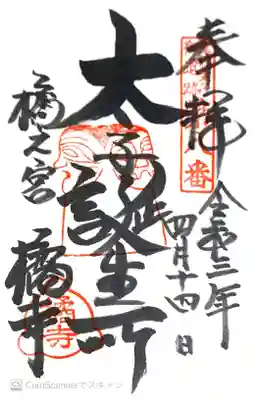 奉拝
令和三年
四月十四日
番
太子誕生所
橘之宮
橘寺
橘寺
CamScannerでスキャン